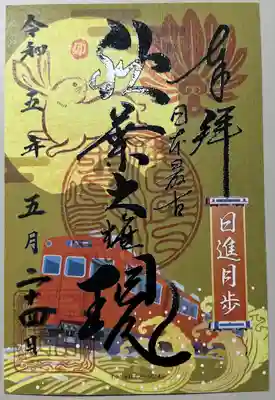 奉拝
日進月歩
日本最古
秋葉大権現
卯
令和五年五月二十四日